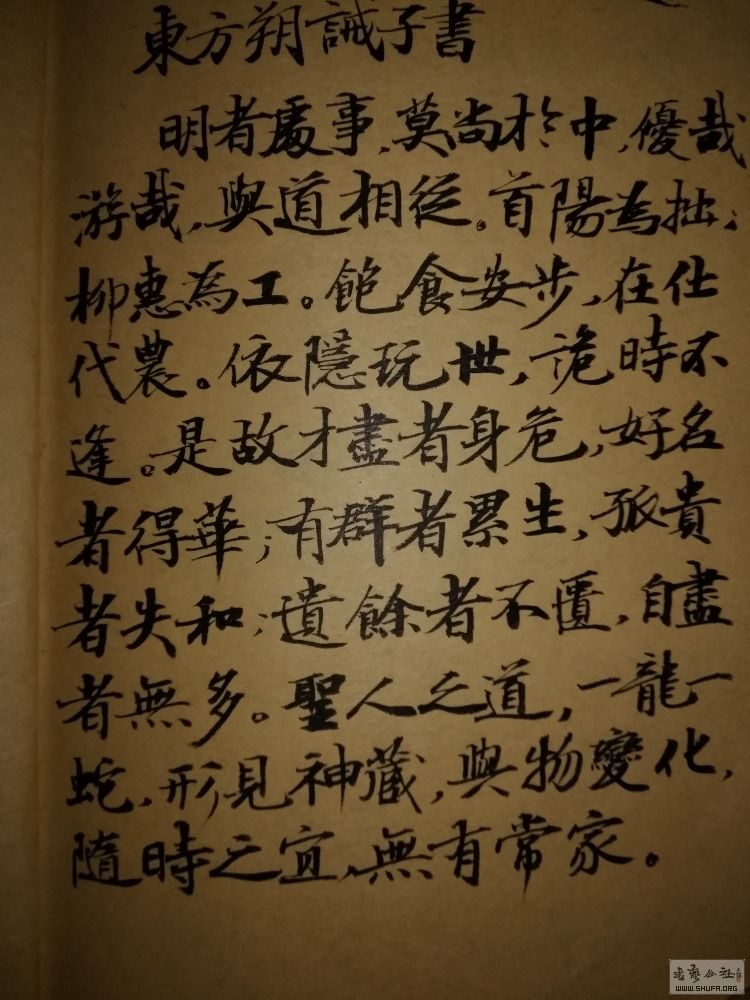 東方朔誡子書
明者處事,莫尚於中,優哉
游哉,與道相從。首陽為拙;
柳惠為工。飽食安步,在仕
代農。依隱玩世,詭時不
逢。是故才盡者身危,好名
者得華;有群者累生,孤貴
者失和;遺餘者不匱,自盡
者無多。聖人之道,一龍一
蛇,形見神藏,與物變化,
隨時之宜,無有常家。
WWW.SHUFA.ORG